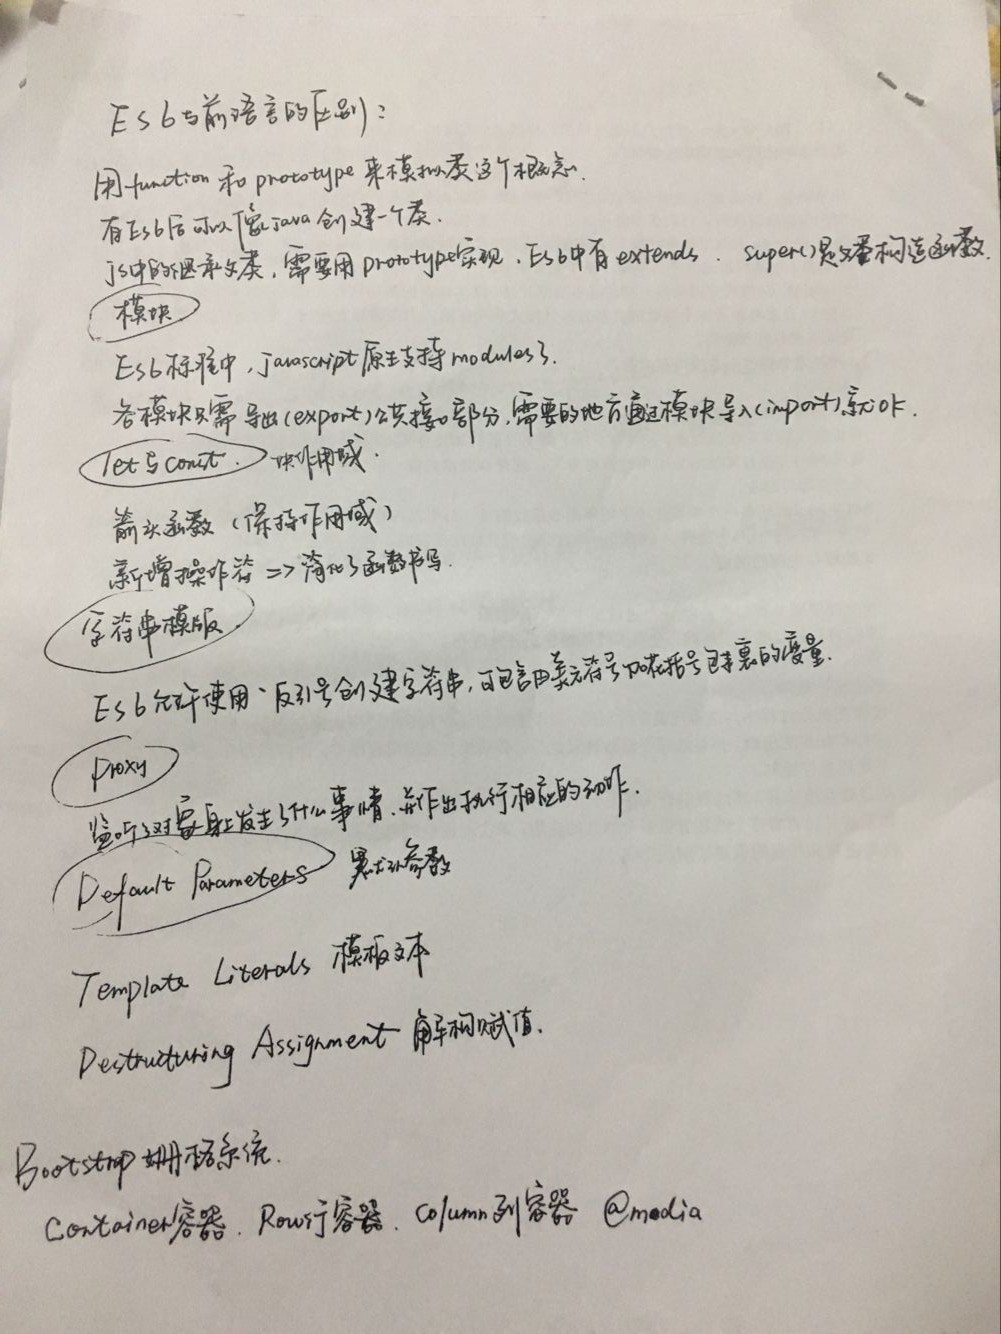 Es6与前语言的区别:
用function和prototype来模拟类这个概念.
有Es6后可以像java创建一个类.
js中的继承父类,需要用prototype实现.Es6中有extends. super()是父类构造函数.
模块
Es6标准中,javascript原生支持modules了.
各模块只需导出(export)公共接口部分,需要的地方通过模块导入(import)就ok.
let与const. 块作用域.
箭头函数(保持作用域)
新增操作符=>简化了函数书写.
字符串模版.
Es6允许使用`反引号创建字符串,可包含由美元符号加花括号包裹的变量.
Proxy
监听了对象身上发生了什么事情.并作出执行相应的动作.
Default Parameters 默认参数
Template Literals 模板文本
Destructuring Assignment 解构赋值.
Bootstrap 栅格系统.
Container容器. Row行容器. Column列容器 @media